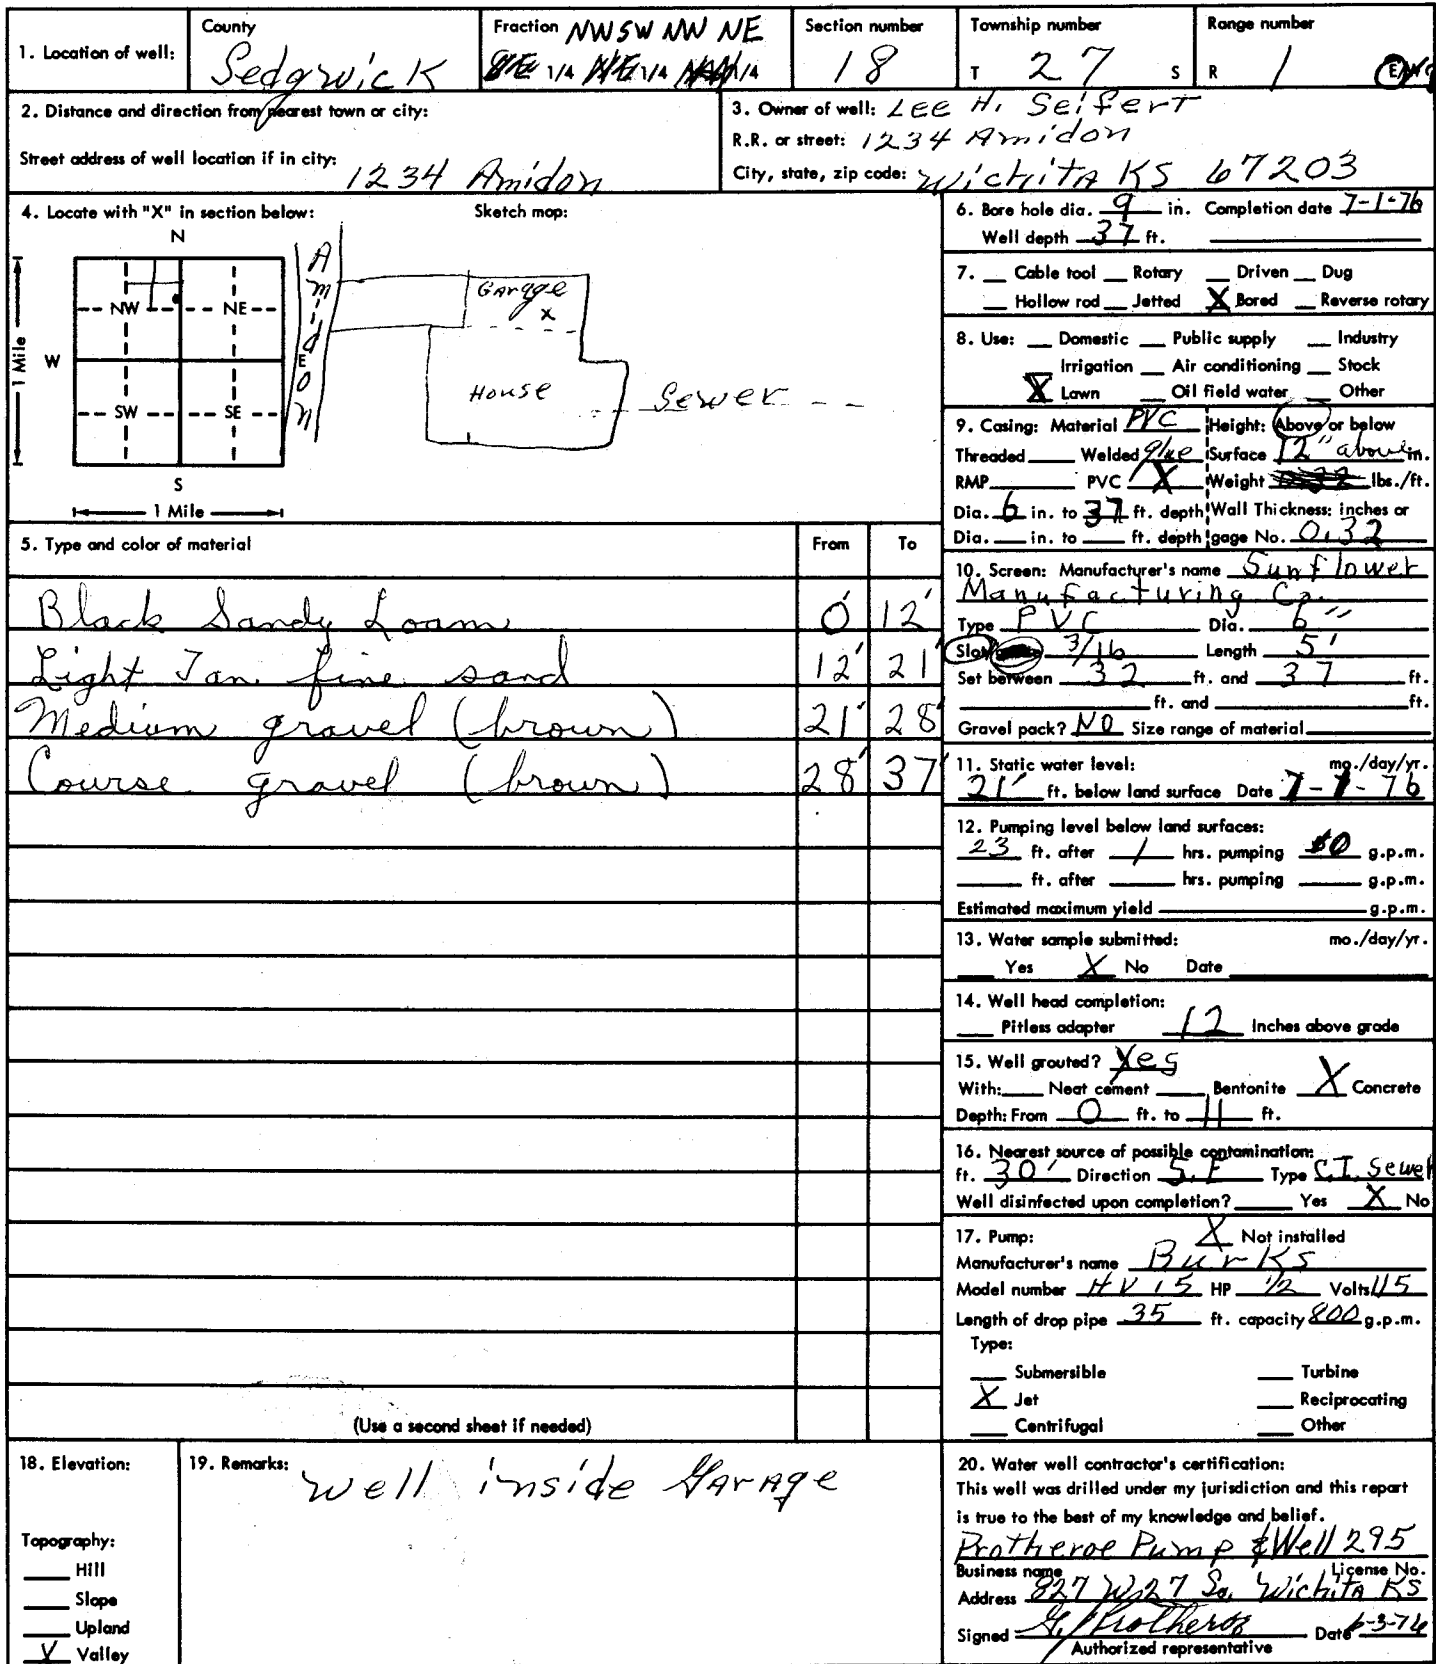 1. Location of well:
County
Sedgwick
Fraction NW SW NW NE
1/4 1/4 1/4
Section number
18
Township number
T 27 S
Range number
R 1 E/W
2. Distance and direction from nearest town or city:
Street address of well location if in city: 1234 Amidon
3. Owner of well: Lee H. Seifert
R.R. or street: 1234 Amidon
City, state, zip code: Wichita KS 67203
4. Locate with "X" in section below:
Sketch map:
N
NW NE
W E
SW SE
S
1 Mile
1 Mile
Amidon
Garage
X
House
Sewer
5. Type and color of material From To
Black Sandy Loam 0' 12'
Light Tan fine sand 12' 21'
Medium gravel (brown) 21' 28'
Course gravel (brown) 28' 37'
(Use a second sheet if needed)
6. Bore hole dia. 9 in. Completion date 7-1-76
Well depth 37 ft.
7. Cable tool Rotary Driven Dug
Hollow rod Jetted X Bored Reverse rotary
8. Use: Domestic Public supply Industry
Irrigation Air conditioning Stock
X Lawn Oil field water Other
9. Casing: Material PVC Height: Above or below
Threaded Welded glue Surface 12" above in.
RMP PVC X Weight lbs./ft.
Dia. 6 in. to 37 ft. depth Wall Thickness: inches or
Dia. in. to ft. depth gage No. 0.32
10. Screen: Manufacturer's name Sunflower
Manufacturing Co.
Type PVC Dia. 6"
Slot 3/16 Length 5'
Set between 32 ft. and 37 ft.
ft. and ft.
Gravel pack? NO Size range of material
11. Static water level: mo./day/yr.
21' ft. below land surface Date 7-1-76
12. Pumping level below land surfaces:
23 ft. after 1 hrs. pumping g.p.m.
ft. after hrs. pumping g.p.m.
Estimated maximum yield g.p.m.
13. Water sample submitted: mo./day/yr.
Yes X No Date
14. Well head completion:
Pitless adapter 12 Inches above grade
15. Well grouted? Yes
With: Neat cement Bentonite X Concrete
Depth: From 0 ft. to 11 ft.
16. Nearest source of possible contamination:
ft. 30' Direction S.E Type C.I. Sewer
Well disinfected upon completion? Yes X No
17. Pump: X Not installed
Manufacturer's name Burks
Model number HV15 HP 1/2 Volts 115
Length of drop pipe 35 ft. capacity 800 g.p.m.
Type:
Submersible Turbine
X Jet Reciprocating
Centrifugal Other
18. Elevation:
Topography:
Hill
Slope
Upland
X Valley
19. Remarks: well inside Garage
20. Water well contractor's certification:
This well was drilled under my jurisdiction and this report
is true to the best of my knowledge and belief.
Protheroe Pump & Well 295
Business name License No.
Address 827 W. 27 So. Wichita KS
Signed G. Protheroe Date 6-3-76
Authorized representative